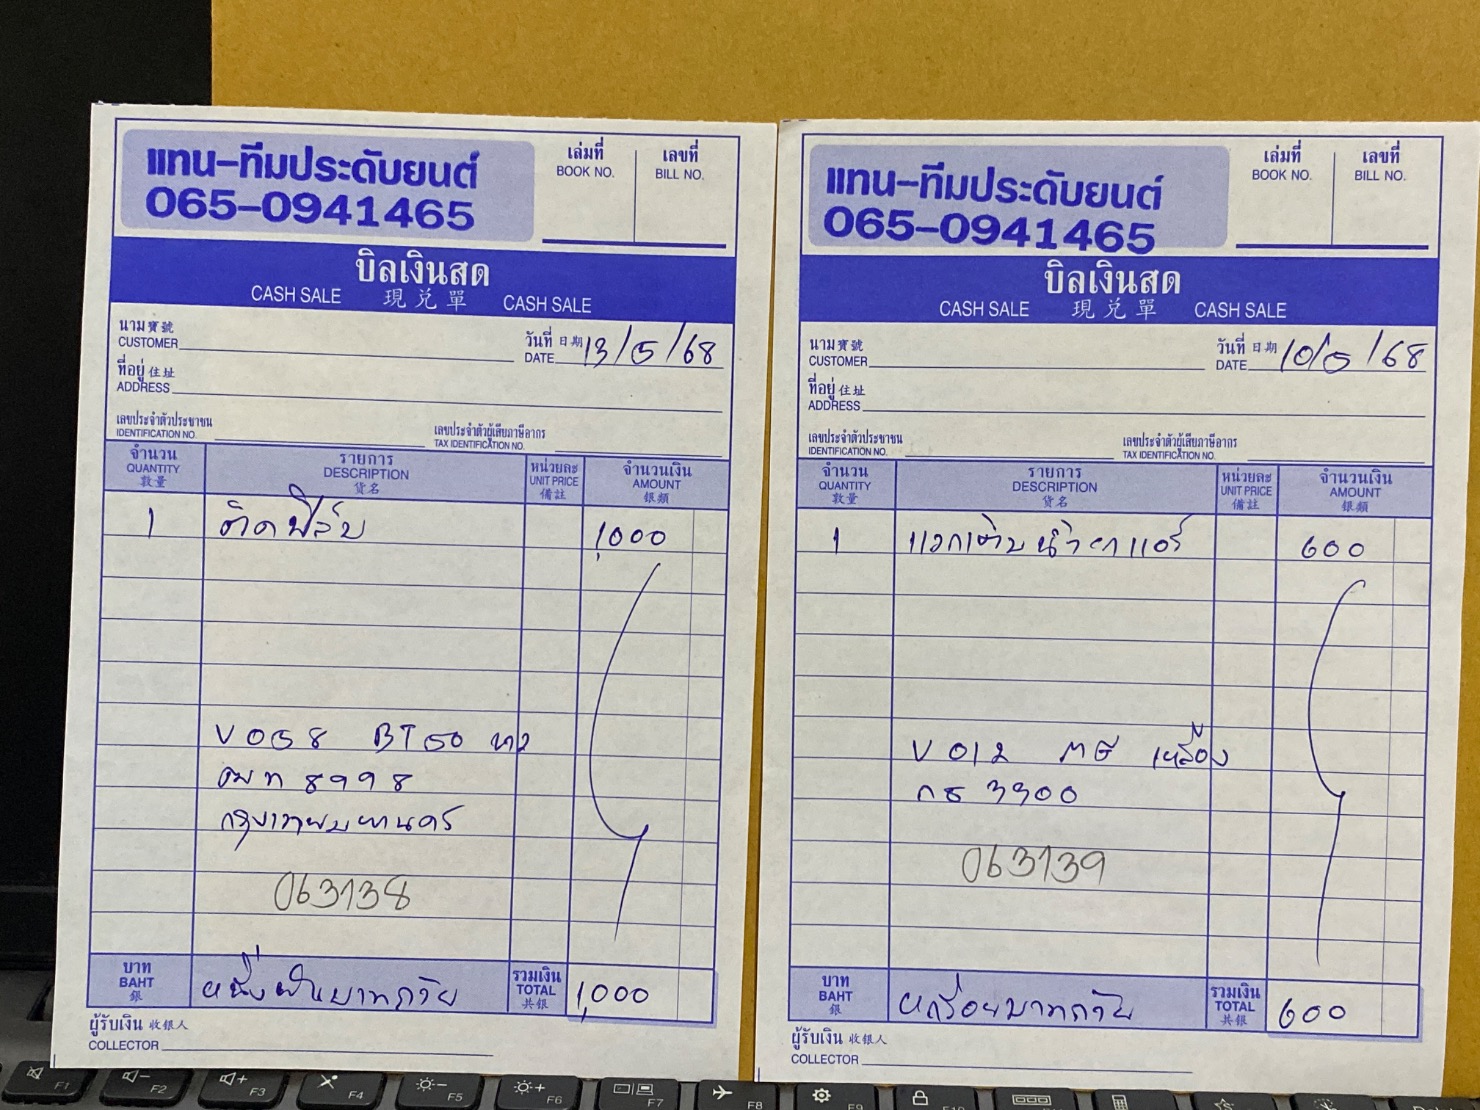 แทน-ทีมประดับยนต์
065-0941465
เล่มที่
BOOK NO.
เลขที่
BILL NO.
บิลเงินสด
CASH SALE 現兌單 CASH SALE
นาม寶號
CUSTOMER
วันที่ 日期
DATE 13/5/68
ที่อยู่ 住址
ADDRESS
เลขประจำตัวประชาชน
IDENTIFICATION NO.
เลขประจำตัวผู้เสียภาษีอากร
TAX IDENTIFICATION NO.
จำนวน
QUANTITY
數量
รายการ
DESCRIPTION
貨名
หน่วยละ
UNIT PRICE
備註
จำนวนเงิน
AMOUNT
銀額
1 ติดฟิล์ม 1,000
V058 BT50
8998
กรุงเทพมหานคร
063138
บาท
BAHT
銀
หนึ่งพันบาทถ้วน
รวมเงิน
TOTAL
共銀
1,000
ผู้รับเงิน 收銀人
COLLECTOR
แทน-ทีมประดับยนต์
065-0941465
เล่มที่
BOOK NO.
เลขที่
BILL NO.
บิลเงินสด
CASH SALE 現兌單 CASH SALE
นาม寶號
CUSTOMER
วันที่ 日期
DATE 10/5/68
ที่อยู่ 住址
ADDRESS
เลขประจำตัวประชาชน
IDENTIFICATION NO.
เลขประจำตัวผู้เสียภาษีอากร
TAX IDENTIFICATION NO.
จำนวน
QUANTITY
數量
รายการ
DESCRIPTION
貨名
หน่วยละ
UNIT PRICE
備註
จำนวนเงิน
AMOUNT
銀額
1 แวกเติมน้ำยาแอร์ 600
V012 เหลือง
3900
063139
บาท
BAHT
銀
หกร้อยบาทถ้วน
รวมเงิน
TOTAL
共銀
600
ผู้รับเงิน 收銀人
COLLECTOR
F1 F2 F3 F4 F5 F6 F7 F8 F9 F10